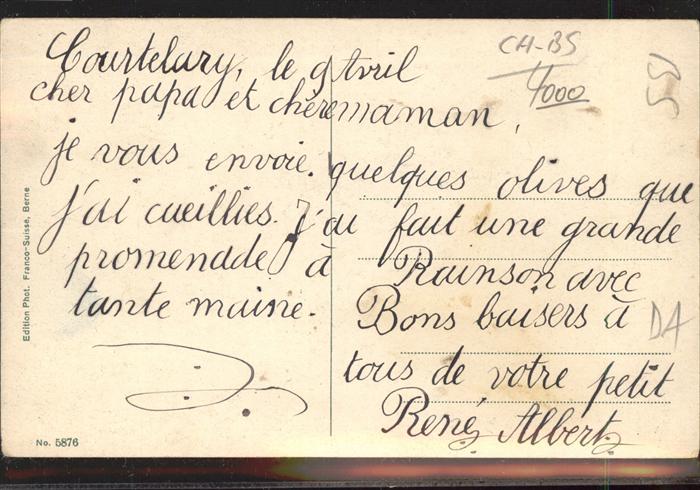 Courtelary, le 9 Avril
cher papa et chère maman,
je vous envoie quelques olives que
j'ai cueillies. J'ai fait une grande
promenade à Rainson avec
tante maine. Bons baisers à
tous de votre petit
René Albert
CH-BS
1000
BS
DA
Edition Phot. Franco-Suisse, Berne
No. 5876